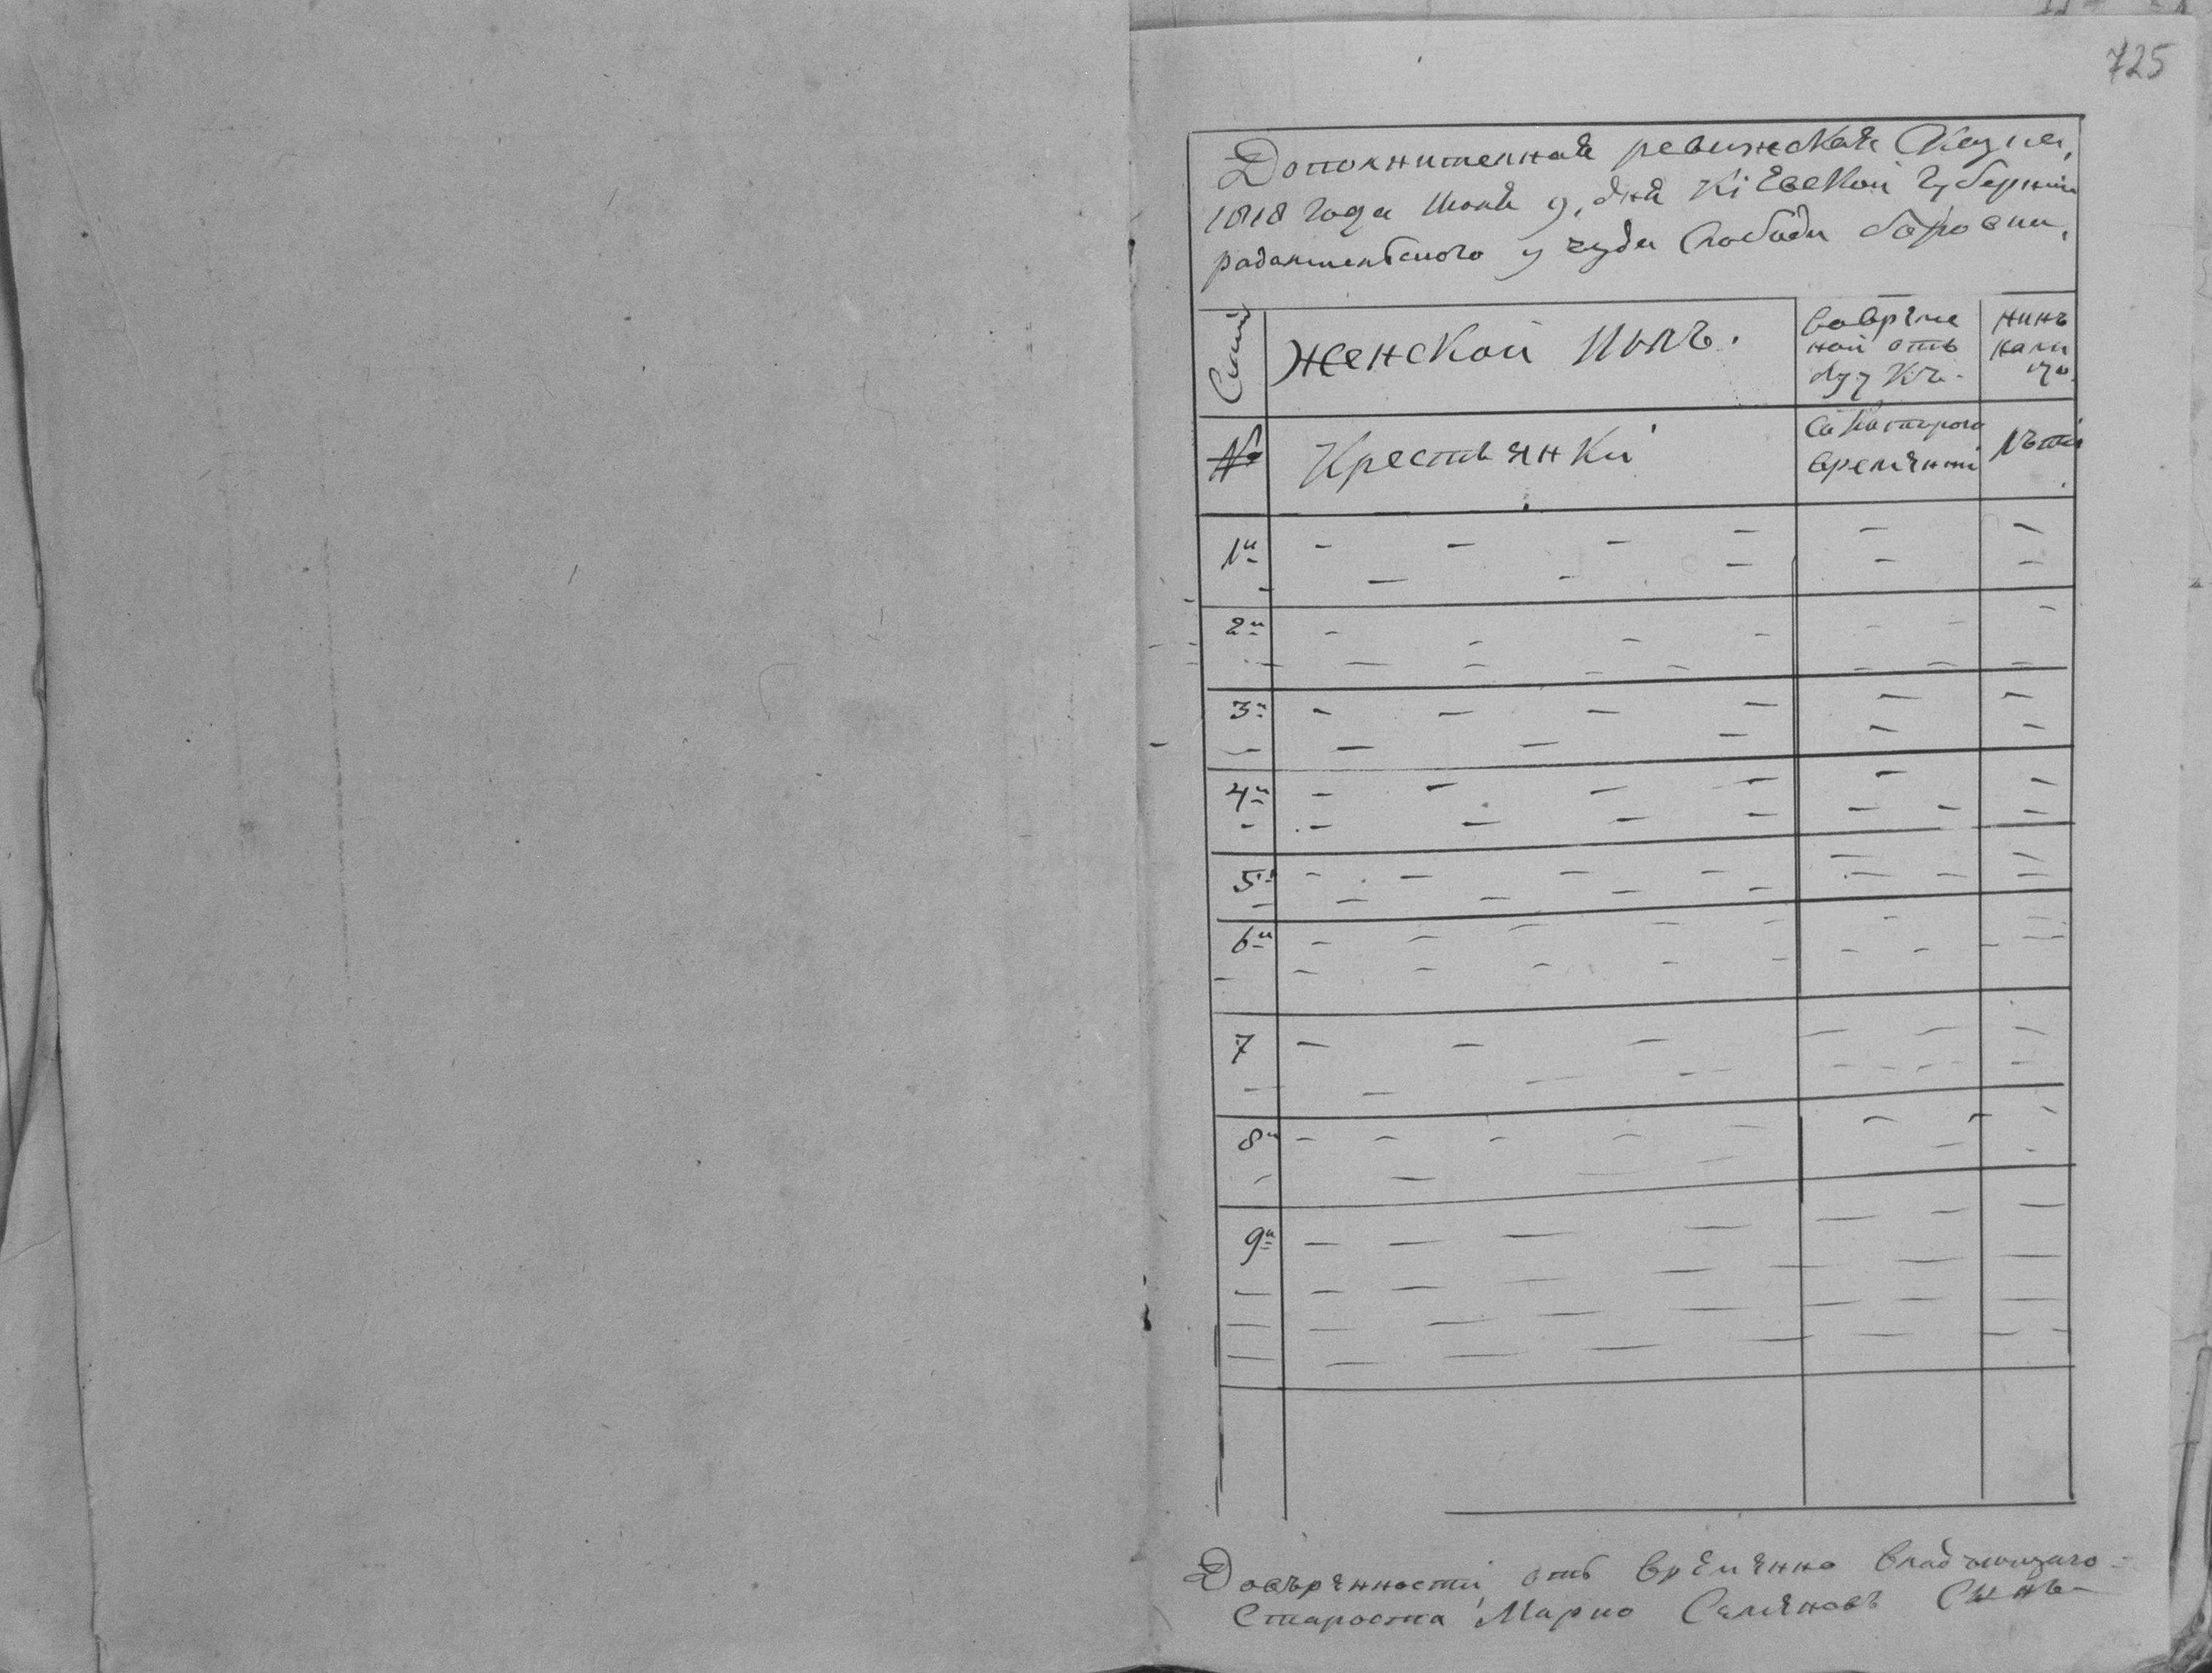 725
Дополнителная ревижская Скаска,
1818 года Июня 9, дня Кіевской Губерніи
радомисльского уезда Слободи боровки,
Семіи
женской Полъ.
Вовреме
ной отъ
луч Къ.
нинѣ
нали
цо.
№
Крестьянки
Съ Котораго
времянні
Лѣта
1й
2й
3й
4й
5й
6й
7
8й
9й
Довѣрянности отъ Времянно Владѣющаго
Староста Марко Семяновъ Синъ